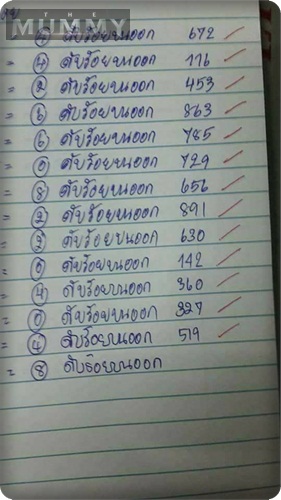 THE
MUMMY
ดับร้อยบนออก 672
= 4 ดับร้อยบนออก 116
= 2 ดับร้อยบนออก 453
= ดับร้อยบนออก 863
= 6 ดับร้อยบนออก 785
= 0 ดับร้อยบนออก 729
= 8 ดับร้อยบนออก 656
= 2 ดับร้อยบนออก 891
= 2 ดับร้อยบนออก 630
= 0 ดับร้อยบนออก 142
= 4 ดับร้อยบนออก 360
= 0 ดับร้อยบนออก 327
= 4 ดับร้อยบนออก 519
= 8 ดับร้อยบนออก